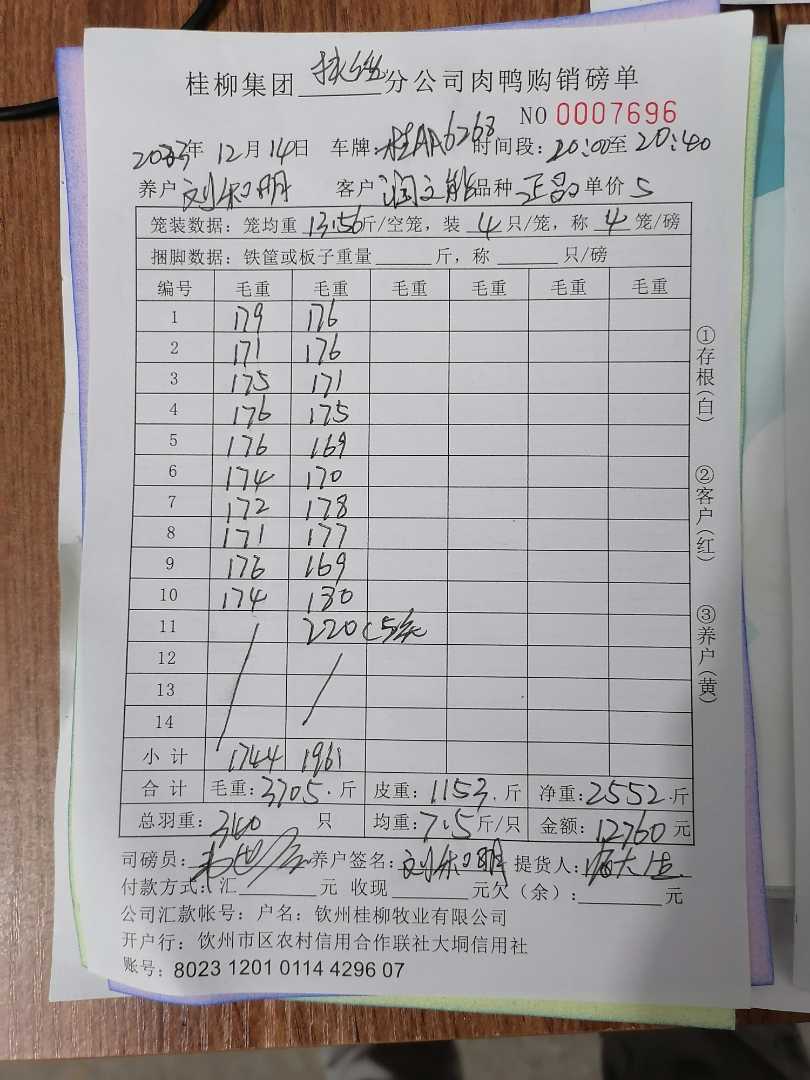 桂柳集团分公司肉鸭购销磅单
NO 0007696
2023年 12月 14日 车牌:桂AA6268 时间段:20:00至20:40
养户 刘和明 客户 润文能 品种 正品 单价 5
笼装数据:笼均重 13.156斤/空笼,装 4 只/笼,称 4 笼/磅
捆脚数据:铁筐或板子重量______斤,称______只/磅
编号 毛重 毛重 毛重 毛重 毛重 毛重
1 179 176
2 171 176
3 175 171
4 176 175
5 176 169
6 174 170
7 172 178
8 171 177
9 176 169
10 174 180
11 / 220 (5
12
13
14
小计 1744 1961
合计 毛重:3705.斤 皮重:1153.斤 净重:2552.斤
总羽重:340只 均重:7.5斤/只 金额:12760元
司磅员: 养户签名:刘和明 提货人:
付款方式:汇______元 收现______元欠(余):______元
公司汇款帐号:户名:钦州桂柳牧业有限公司
开户行:钦州市区农村信用合作联社大垌信用社
账号:8023 1201 0114 4296 07
①存根(白)
②客户(红)
③养户(黄)